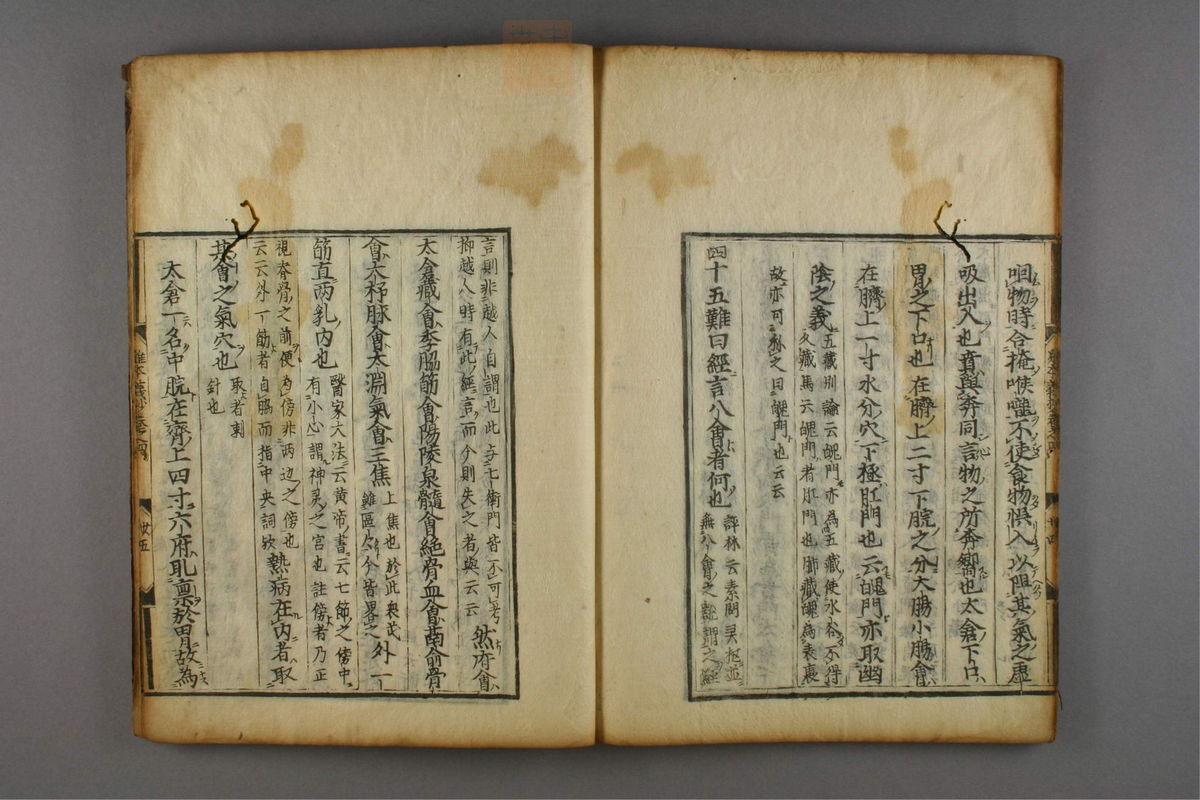 咽物時令掩喉嚨不使食物悞入以阻其氣之
吸出入也賁與奔同言物之所奔嚮也太倉下口
胃之下口也在臍上二寸下脘之分大腸小腸會
在臍上一寸水分穴下極肛門也云魄門亦取幽
陰之義
五藏別論云魄門亦為五藏使水谷不得
久藏馬云魄門者肛門也肺藏魄為表裏
故亦可称之曰魄門也云云
四十五難曰經言八會者何也
評林云素問灵枢並
無八會之說謂之經
言則非越人自謂也此与七衝門皆不可考
抑越人時有此經言而今則失之者與云云
然府會
太倉藏會季脇筋會陽陵泉髓會絕骨血會鬲俞骨
會大杼脉會太淵氣會三焦
上焦也於此表茂
雖區々今皆畧之
外一
筋直兩乳內也
醫家大法云黄帝書云七節之傍中
有小心謂神灵之宮也註傍者乃正
視脊骨之前便為傍非兩边之傍也
云云外一筋者自脇而指中央詞欤
熱病在內者取
其會之氣穴也
取者刺
針也
太倉一名中脘在臍上四寸六府取稟於胃故為
廿五